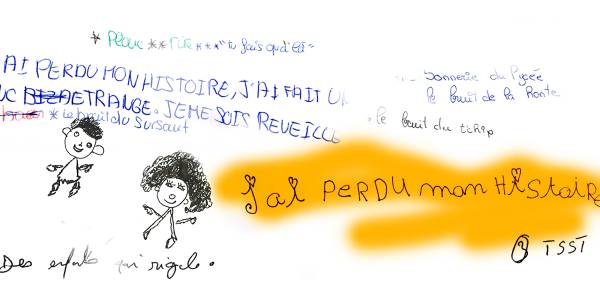 * Pleur ** rire *** "tu fais qu'à là"
AI PERDU MON HISTOIRE, J'AI FAIT U
UC ETRANGE. JE ME SUIS REVEILLE
* Le bruit du Sursaut
Sonnerie du lycée
le bruit de la honte
le bruit du tchip
j'ai PERDU mon HiStoire
TSST
Des enfants qui rigole.